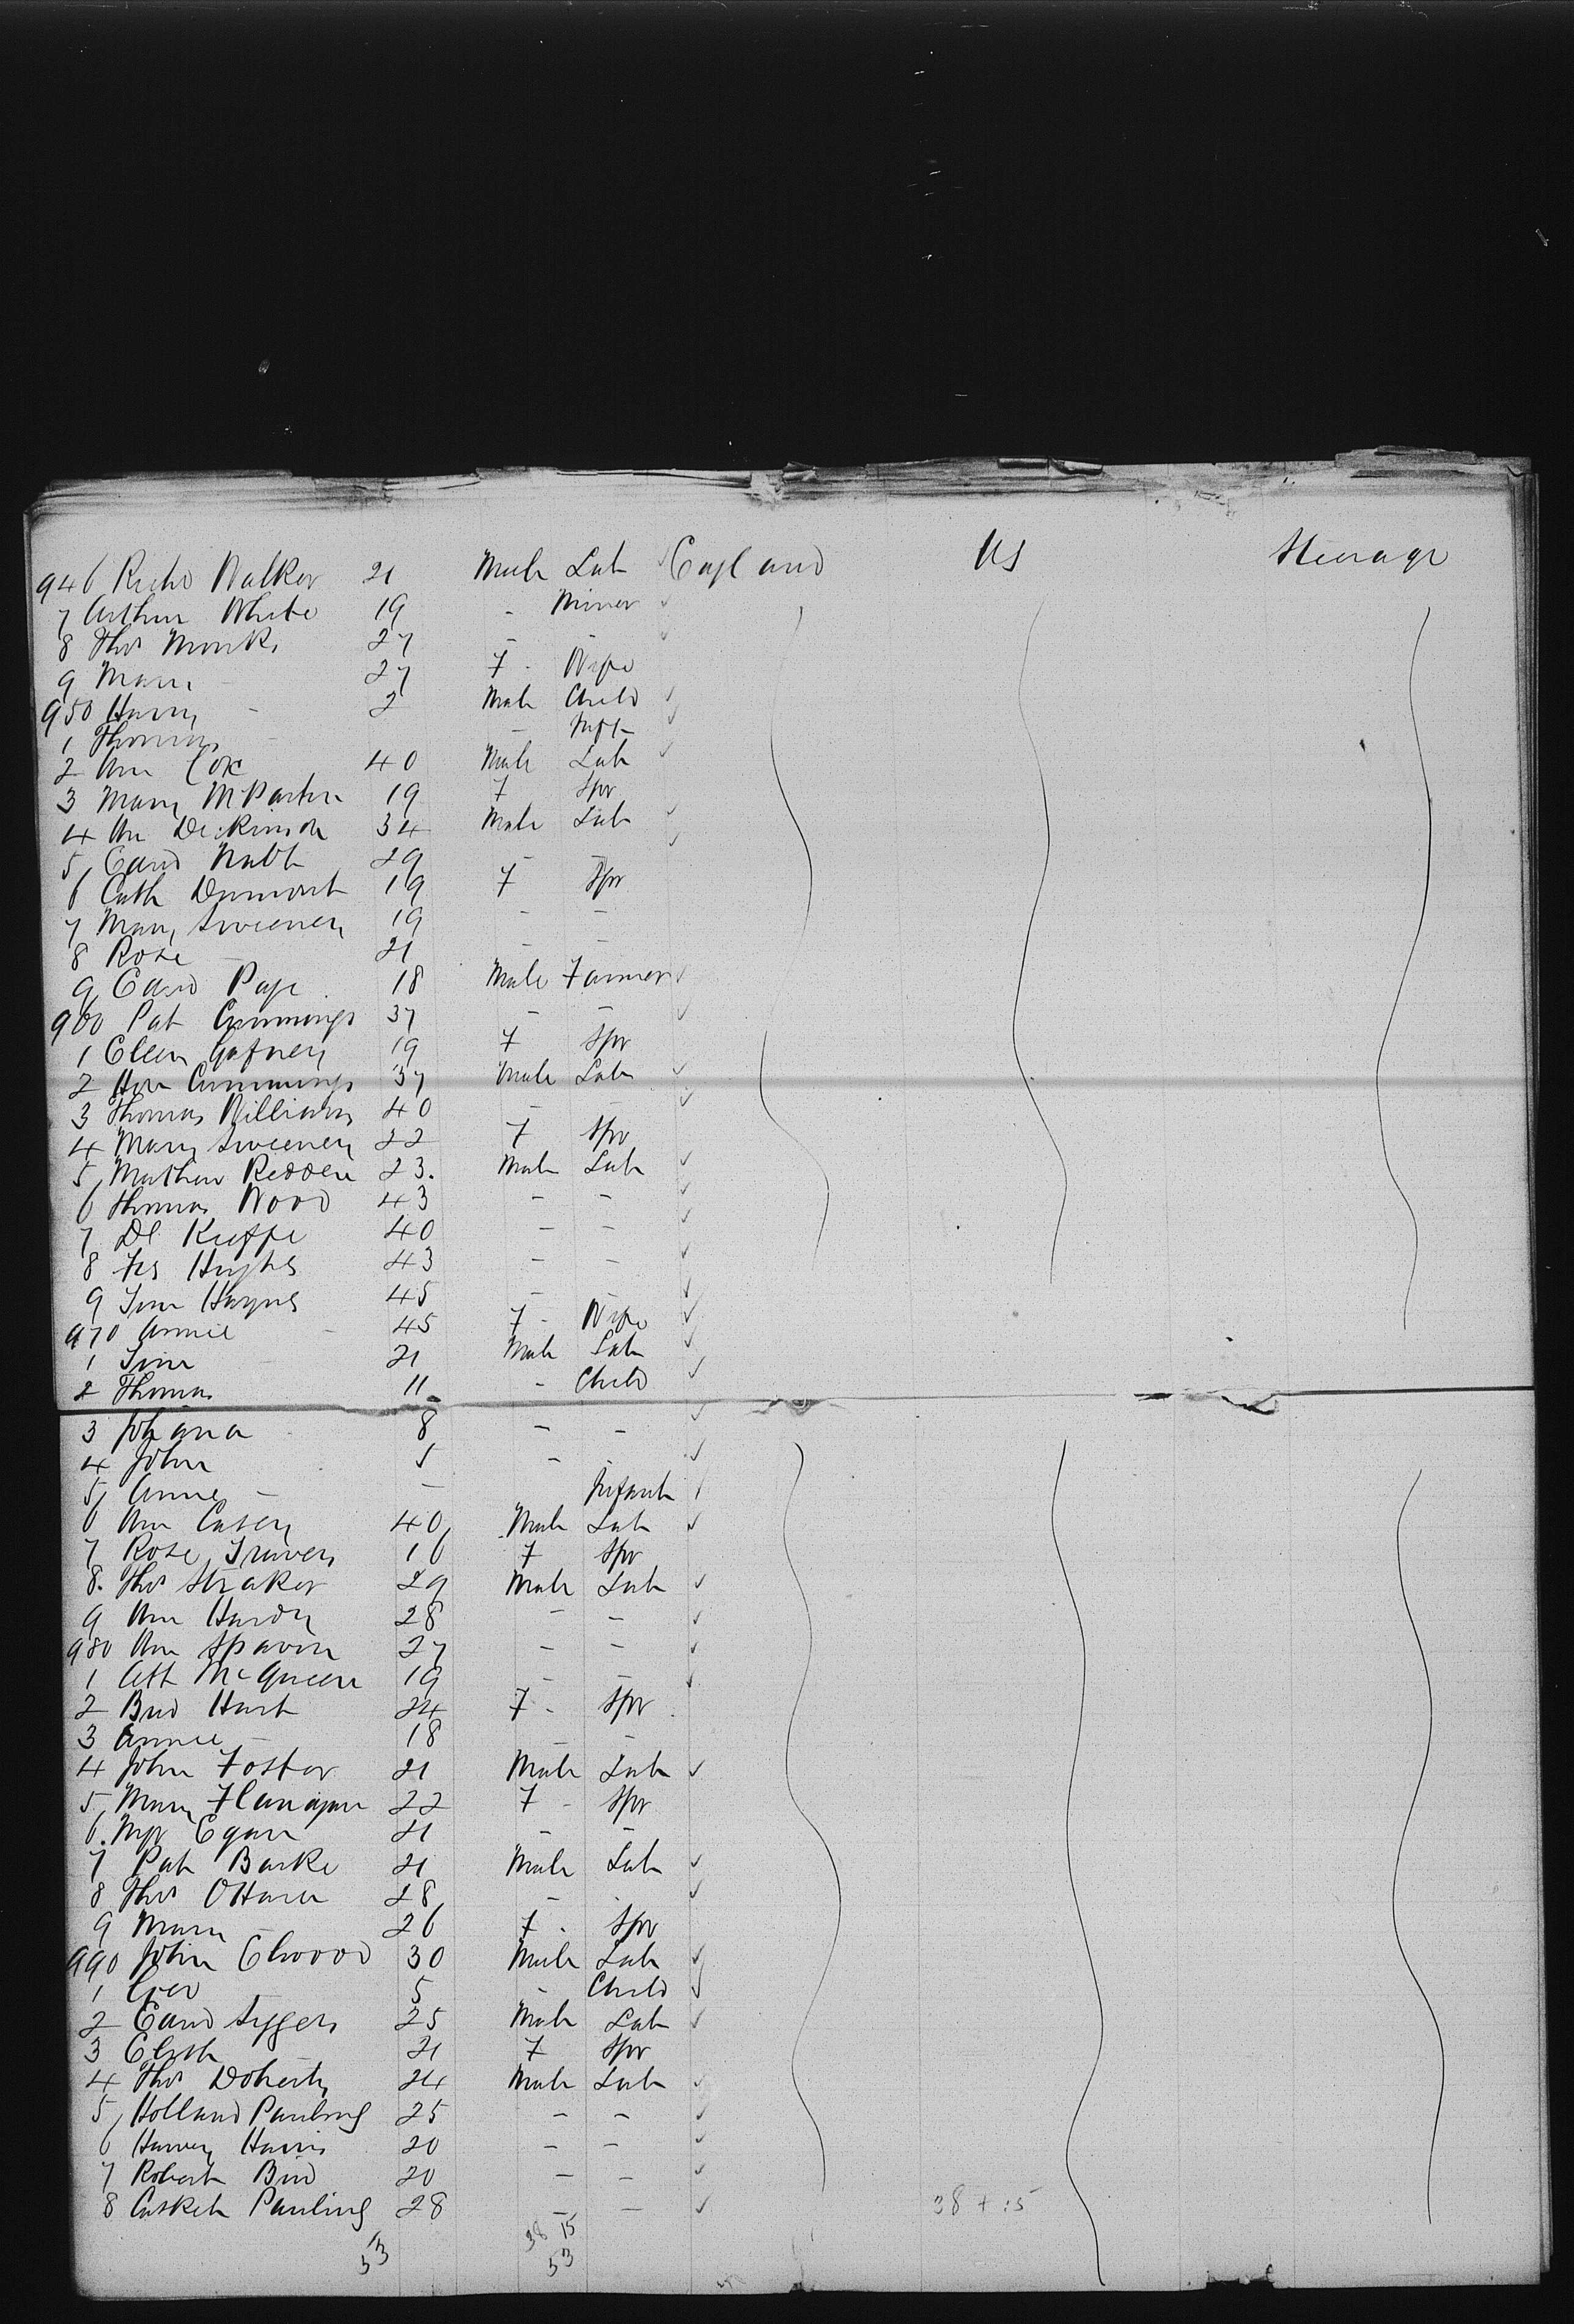 946 Richd Walker 21 Male Lab England US Steerage
7 Arthur White 19 - Miner
8 Thos Monks 27 - -
9 Mary - 27 F - Wife
950 Harry - 2 Male Child
1 Thomas - - Inft
2 Wm Cox 40 Male Lab
3 Mary McPartin 19 F Spr
4 Wm Dickinson 34 Male Lab
5 Edwd Nabb 29 - -
6 Cath 19 F Spr
7 Mary Sweeney 19 - -
8 Rose - 21 - -
9 Edwd Page 18 Male Farmer
960 Pat Cummings 37 - -
1 Ellen Gafney 19 F Spr
2 Cummings 37 Male Lab
3 Thomas Williams 40 - -
4 Mary Sweeney 22 F Spr
5 Mathew Redden 23. Male Lab
6 Thomas Wood 43 - -
7 Dl 40 - -
8 Jas Hughes 43 - -
9 Tim Haynes 45 -
970 Annie - 45 F - Wife
1 Tim - 21 Male Lab
2 Thomas 11 - Child
3 Johana 8 - -
4 John 5 - -
5 Annie - - Infant
6 Wm Casey 40 Male Lab
7 Rose Travers 16 F Spr
8. Thos Straker 29 Male Lab
9 Wm Hardy 28 - -
980 Wm Spavin 27 - -
1 McQueen 19 - -
2 Brid Hart 24 F - Spr
3 Annie - 18 - -
4 John Foster 21 Male Lab
5 Mary Flanagan 22 F - Spr
6. Mgt Egan 21 - -
7 Pat Burke 21 Male Lab
8 Thos OHara 28 -
9 Mary - 26 F - Spr
990 John Elwood 30 Male Lab
1 Geo 5 - Child
2 Edwd Syggers 25 Male Lab
3 Elizth 21 F Spr
4 Thos Doherty 24 Male Lab
5 Holland Pauling 25 - -
6 Harvey Harris 20 - -
7 Robert Bird 20 - -
8 Pauling 28 - - 38 + 15
38 15
53 53